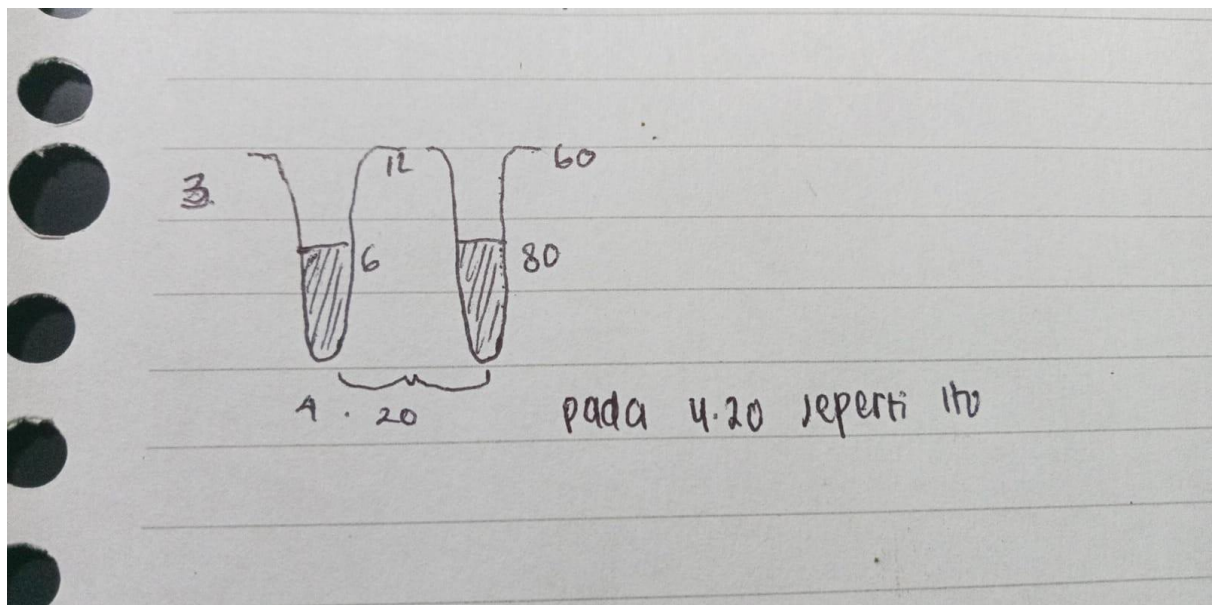 3.
12
60
6
80
4 . 20
pada 4.20 seperti itu